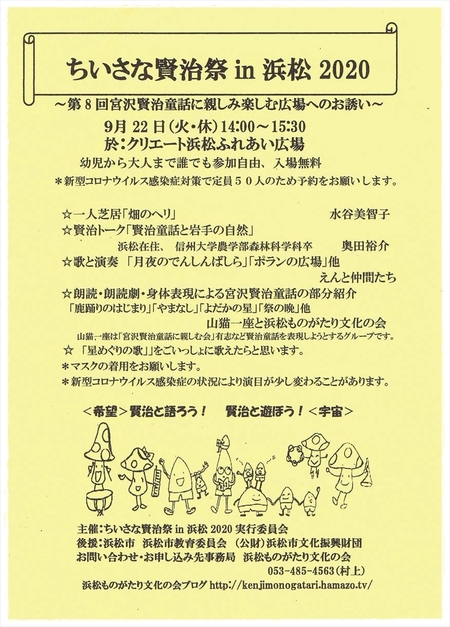 ちいさな賢治祭 in 浜松 2020
～第8回宮沢賢治童話に親しみ楽しむ広場へのお誘い～
9月22日(火・休)14:00～15:30
於:クリエート浜松ふれあい広場
幼児から大人まで誰でも参加自由、入場無料
＊新型コロナウイルス感染症対策で定員50人のため予約をお願いします。
☆一人芝居「畑のヘリ」 水谷美智子
☆賢治トーク「賢治童話と岩手の自然」
浜松在住、信州大学農学部森林科学科卒 奥田裕介
☆歌と演奏 「月夜のでんしんばしら」「ポランの広場」他
えんと仲間たち
☆朗読・朗読劇・身体表現による宮沢賢治童話の部分紹介
「鹿踊りのはじまり」「やまなし」「よだかの星」「祭の晩」他
山猫一座と浜松ものがたり文化の会
山猫一座は「宮沢賢治童話に親しむ会」有志など賢治童話を表現しようとするグループです。
☆ 「星めぐりの歌」」をごいっしょに歌えたらと思います。
＊マスクの着用をお願いします。
＊新型コロナウイルス感染症の状況により演目が少し変わることがあります。
＜希望＞賢治と語ろう! 賢治と遊ぼう!＜宇宙＞
主催:ちいさな賢治祭 in 浜松 2020 実行委員会
後援:浜松市 浜松市教育委員会 (公財)浜松市文化振興財団
お問い合わせ・お申し込み先事務局 浜松ものがたり文化の会
053-485-4563(村上)
浜松ものがたり文化の会ブログ http://kenjimonogatari.hamazo.tv/